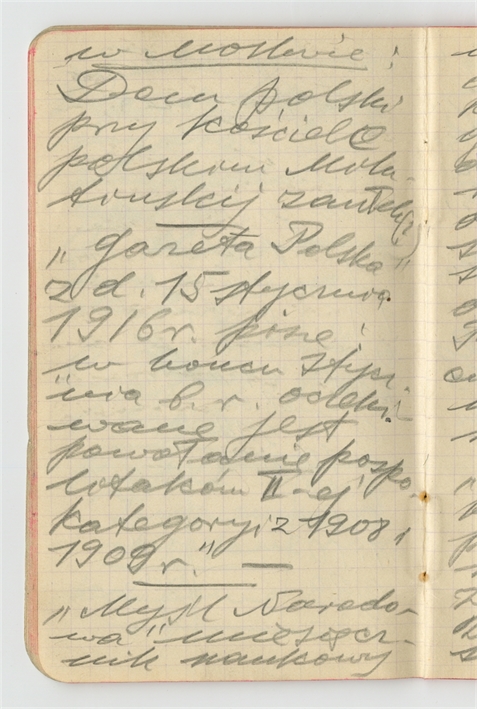 w Moskwie:
Dom polski
przy kościele
polskim Milu-
tinskij zaułek(?)
"Gazeta Polska"
z d. 15 stycznia
1916 r. pisze:
w końcu stycz-
"nia b. r. oczeki-
wane jest
powołanie pospo-
litaków II-ej
kategoryi z 1908 i
1909 r." —
"Myśl Narodo-
wa" miesięcz-
nik naukowy